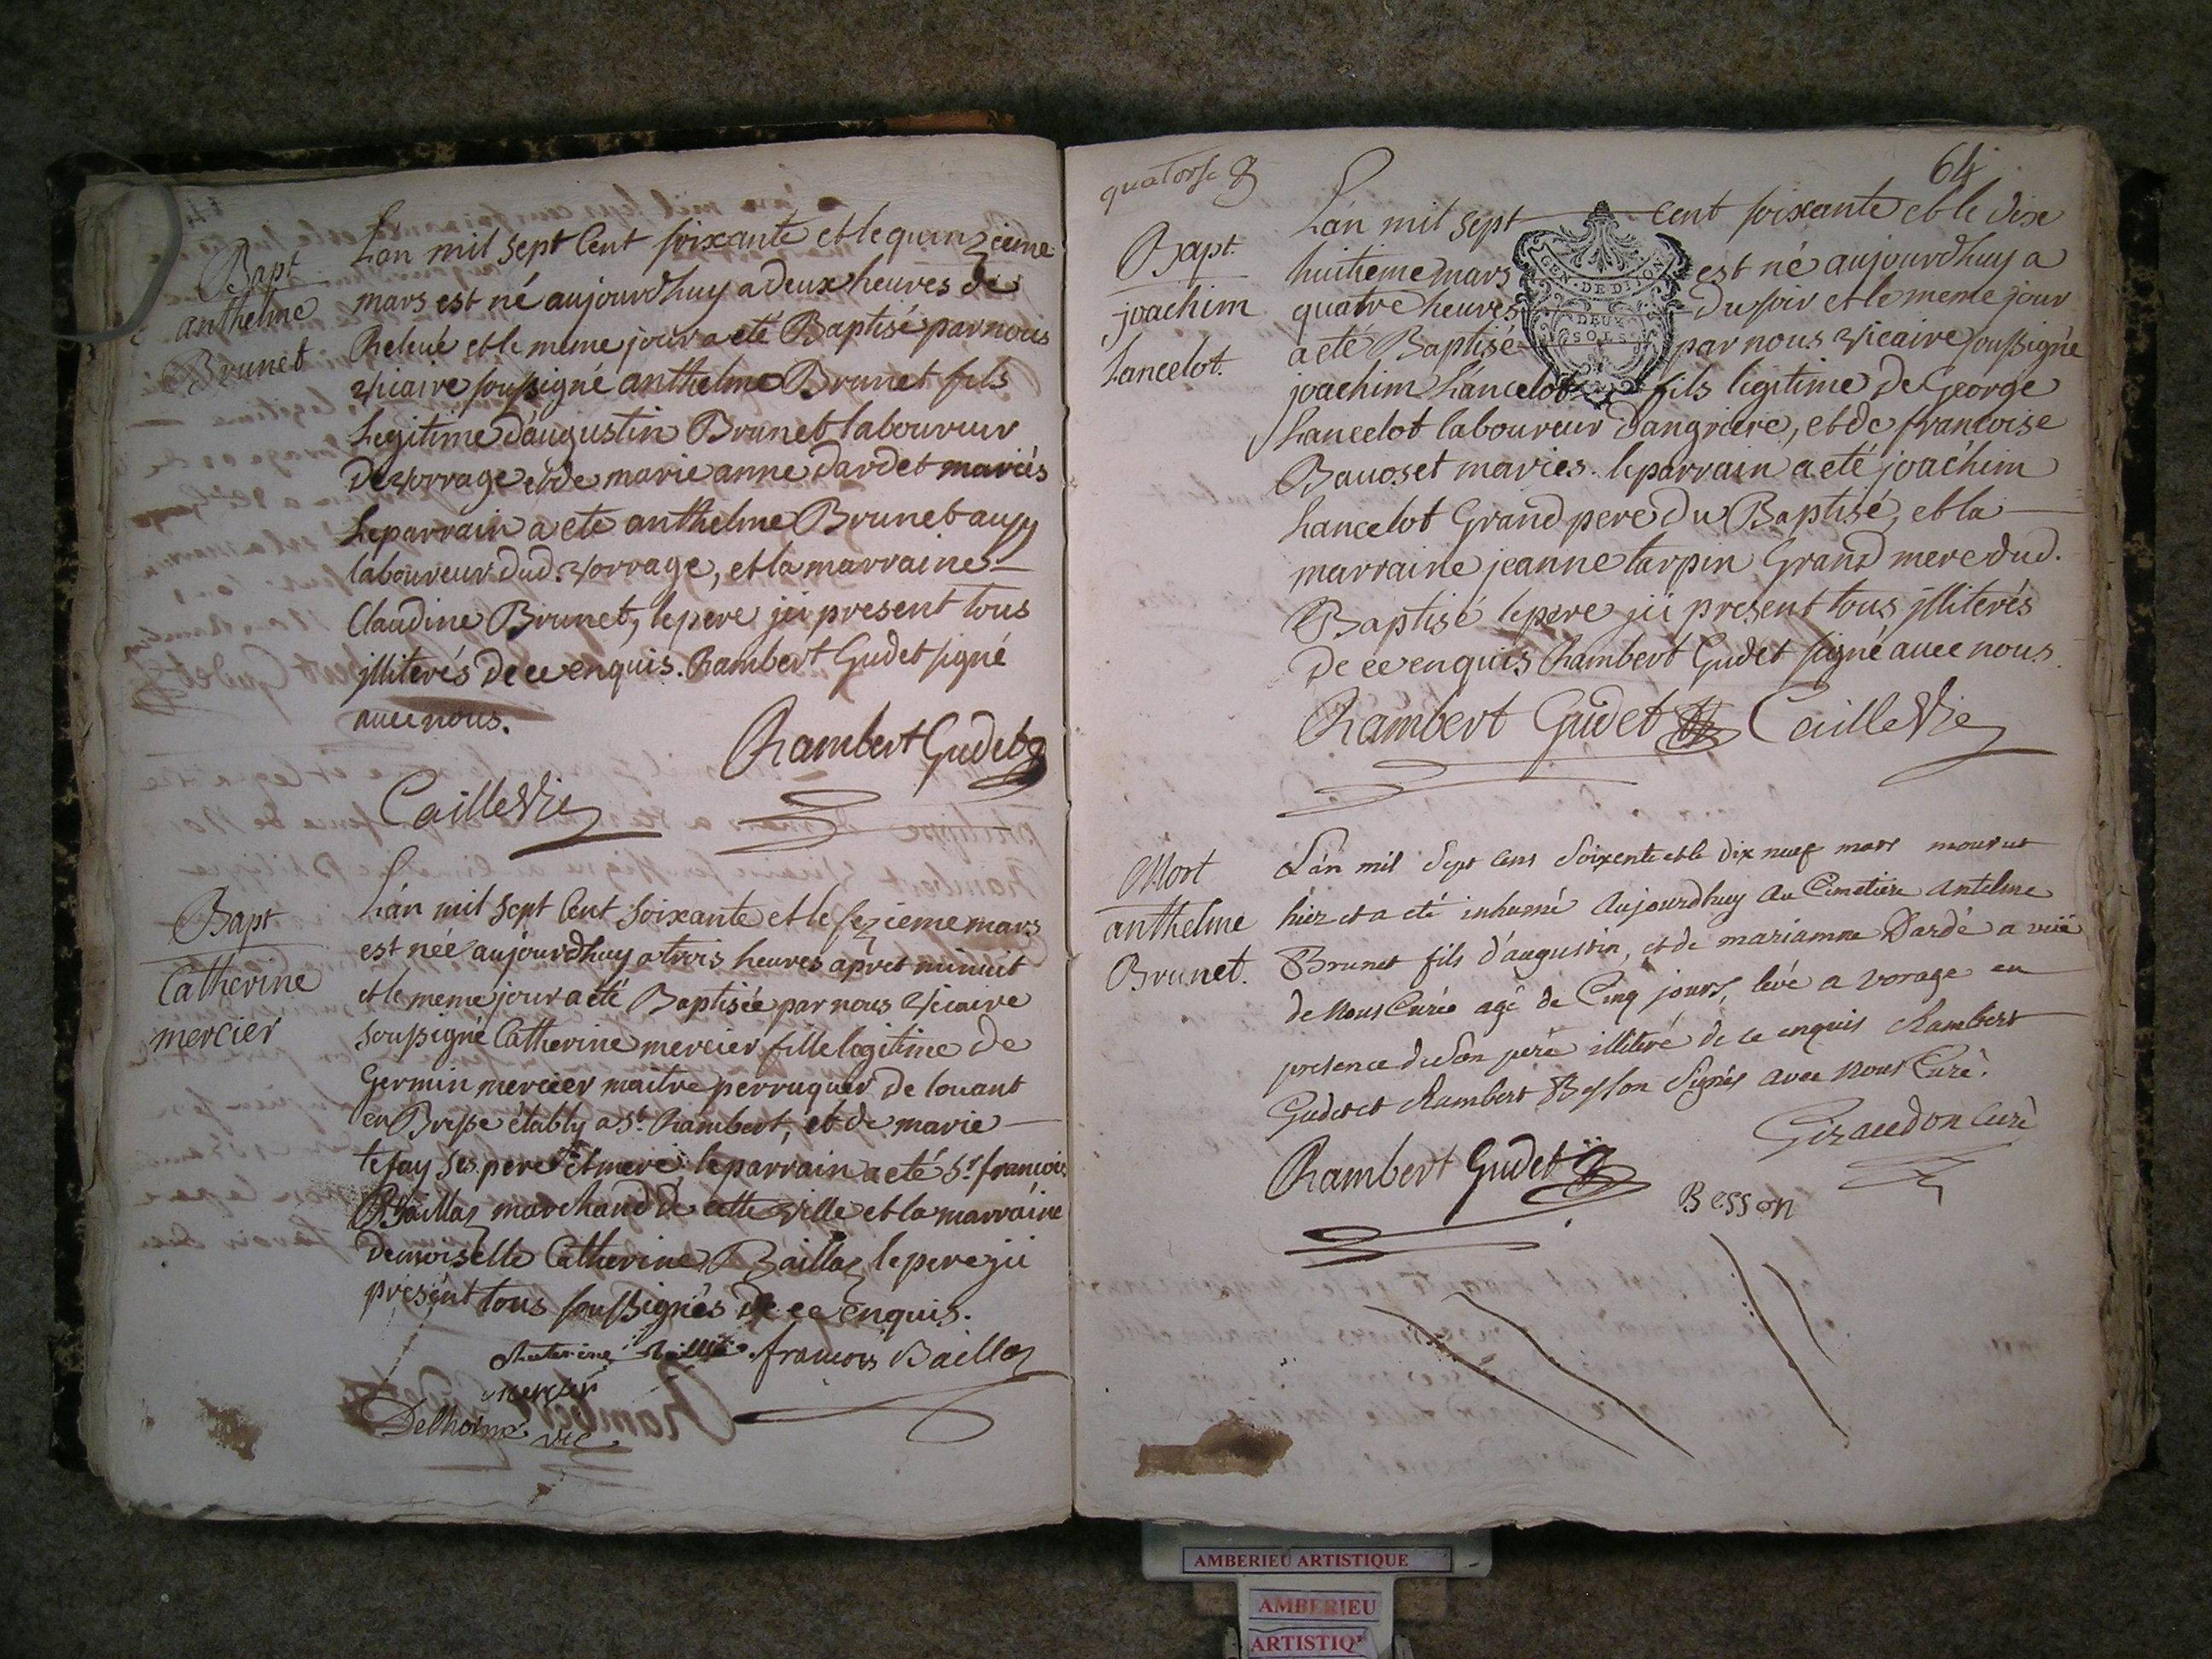 Bapt
anthelme
Brunet
Lan mil sept Cent soixante et le quinzieme
mars est né aujourdhuy a deux heures de
Relevé et le meme jour a eté Baptisé par nous
vicaire soussigné anthelme Brunet fils
Legitime d'augustin Brunet laboureur
de vorrage et de marie anne dardet mariés
Le parrain a ete anthelme Brunet aussy
laboureur dud. vorrage, et la marraine
Claudine Brunet, le pere jci present tous
jlliterés de ce enquis. Rambert Gudet signé
avec nous.
Rambert Gudet
Caille Vic
Bapt
Catherine
mercier
L'an mil sept Cent soixante et le sezieme mars
est née aujourdhuy a trois heures apret minuit
et le meme jour a eté Baptisée par nous vicaire
soussigné Catherine mercier fille legitime de
Germin mercier maitre perruquer de louant
en Bresse étably a St. Rambert, et de marie
tefay ses pere et mere, le parrain a eté Sr. francois
Baillaz marchand de cette ville et la marraine
demoiselle Catherine Baillaz le pere jci
présent tous soussignés de ce enquis.
francois Baillaz
mercier
Delhorme vic
quatorse
64
Bapt.
joachim
Lancelot.
Lán mil sept cent soixante et le dixe
huitieme mars est né aujourdhuy a
quatre heures du soir et le meme jour
a eté Baptisé par nous vicaire soussigné
joachim Lancelot fils legitime de George
Lancelot laboureur dangriere, et de francoise
Bavoset mariés. le parrain a eté joachim
Lancelot Grand pere du Baptisé, et la
marraine jeanne tarpin Grand mere dud.
Baptisé le pere jci present tous jlliterés
de ce enquis Rambert Gudet signé avec nous.
GEN. DE DIJON
DEUX
SOLS
Rambert Gudet Caille Vic
Mort
anthelme
Brunet.
L'án mil Sept Cens Soixente et le dix neuf mars mourut
hier et a eté inhumé Aujourdhuy au Cimetiere Antelme
Brunet fils d'augustin, et de mariamne Dardé a vüe
de nous Curé agé de Cinq jours, levé a vorage en
presence de Son pere illiteré de ce enquis Rambert
Gudet et Rambert Besson Signés avec nous Curé.
Giraudon Curé
Rambert Gudet
Besson
AMBERIEU ARTISTIQUE
AMBERIEU
ARTISTIQ